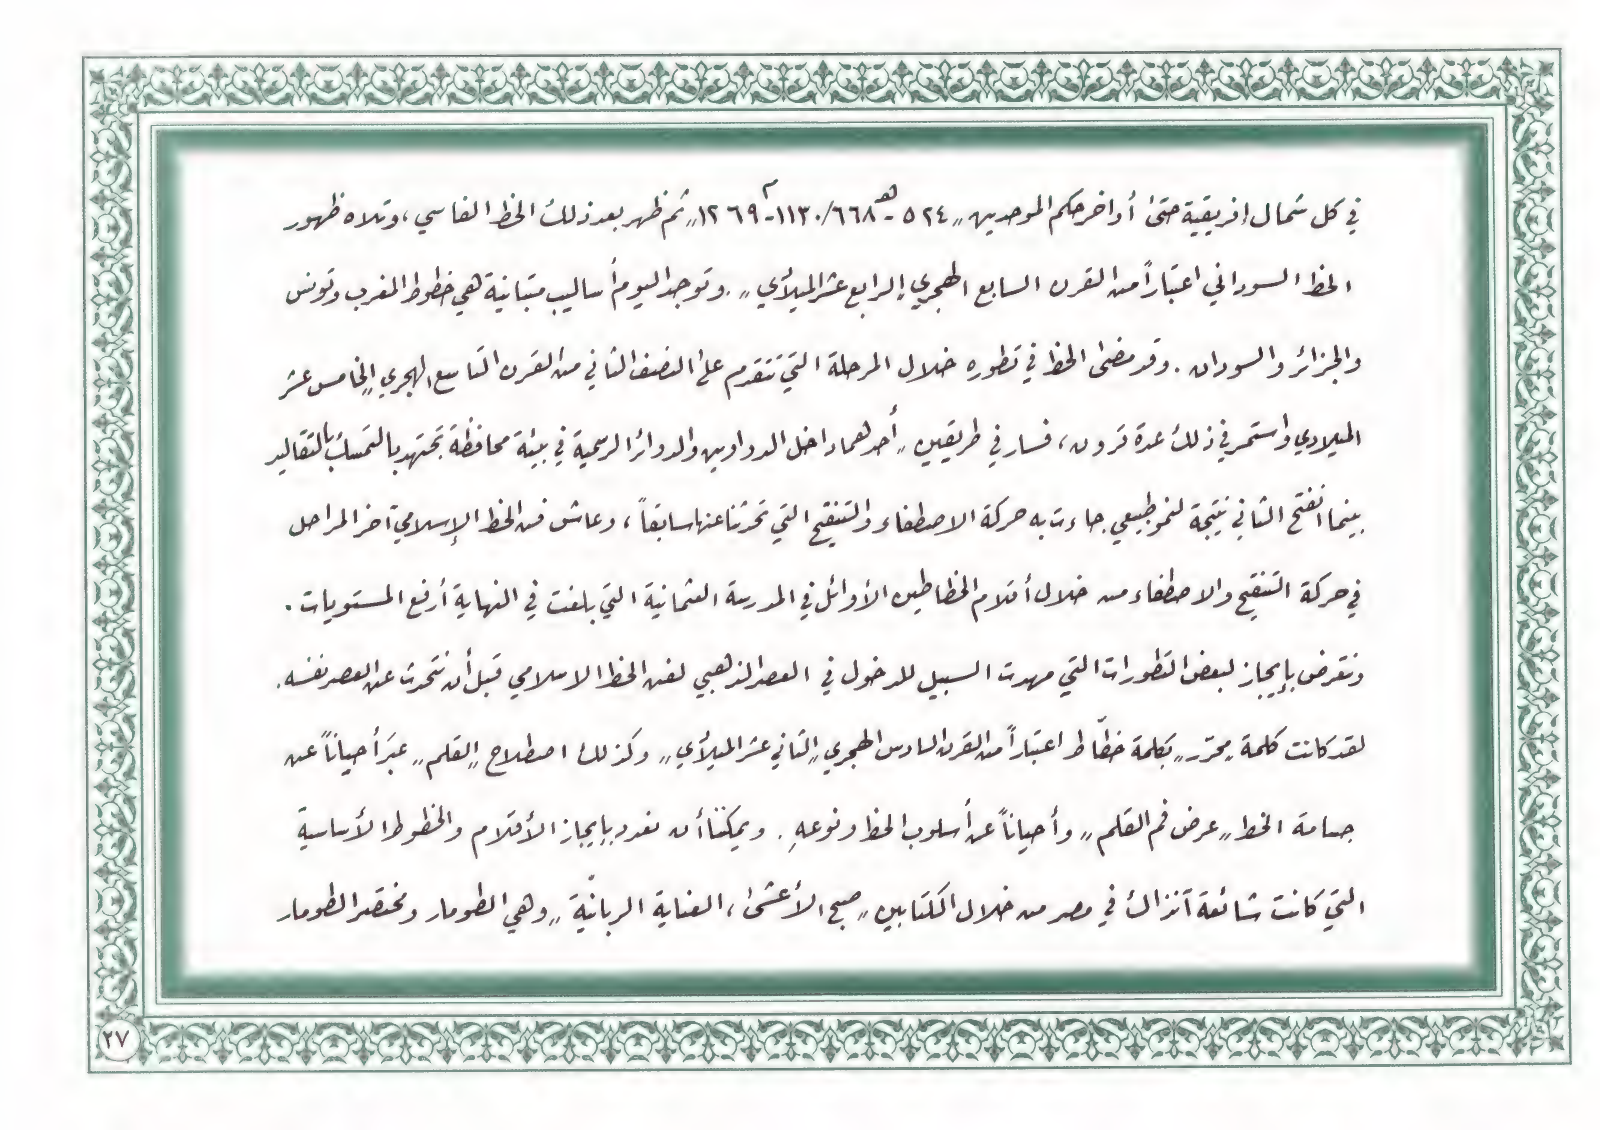 في كل شمال إفريقية حتى أواخر حكم الموحدين „ ٥٢٤ - ٦٦٨هـ/١١٣٠-١٢٦٩م „ ثم ظهر بعد ذلك الخط الفاسي ، وتلاه ظهور
الخط السوداني اعتباراً من القرن السابع الهجري „الرابع عشر الميلادي„ . وتوجد اليوم أساليب متباينة هي خطوط المغرب وتونس
والجزائر والسودان . وقد مضى الخط في تطوره خلال المرحلة التي تتقدم على النصف الثاني من القرن التاسع الهجري „الخامس عشر
الميلادي واستمر في ذلك عدة قرون ، فسار في طريقين „ أحدهما داخل الدواوين والدوائر الرسمية في بيئة محافظة تجتهد بالتمسك بالتقاليد
بينما انفتح الثاني نتيجة لنمو طبيعي جاءت به حركة الاصطفاء والتنقيح التي تحدثنا عنها سابقاً ، وعاش فن الخط الإسلامي آخر المراحل
في حركة التنقيح والاصطفاء من خلال أقلام الخطاطين الأوائل في المدرسة العثمانية التي بلغت في النهاية أرفع المستويات .
ونعرض بإيجاز لبعض التطورات التي مهدت السبيل للدخول في العصر الذهبي لفن الخط الاسلامي قبل أن نتحدث عن العصر نفسه .
لقد كانت كلمة „محرّر„ بكلمة خطّاط اعتباراً من القرن السادس الهجري „الثاني عشر الميلادي„ وكذلك اصطلاح „القلم„ عبّر أحياناً عن
جسامة الخط „عرض فم القلم„ وأحياناً عن أسلوب الخط ونوعهِ . ويمكننا أن نعدد بإيجاز الأقلام والخطوط الأساسية
التي كانت شائعة آنذاك في مصر من خلال الكتابين „صبح الأعشى ، العناية الربانيّة „ وهي الطومار ومختصر الطومار
٢٧